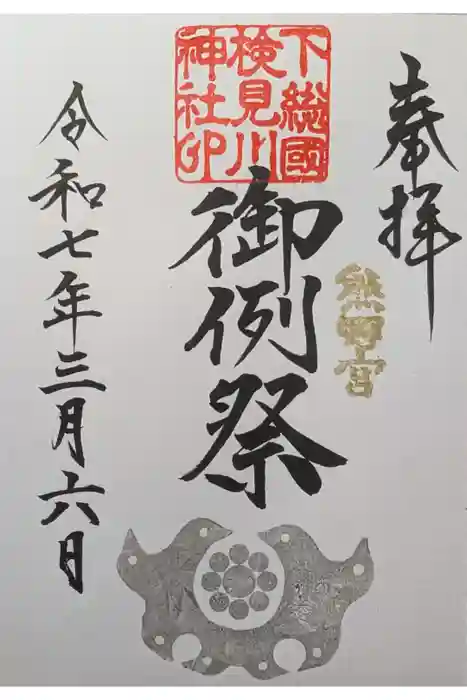 奉拝
熊野宮
下総國
検見川
神社印
御例祭
令和七年三月六日